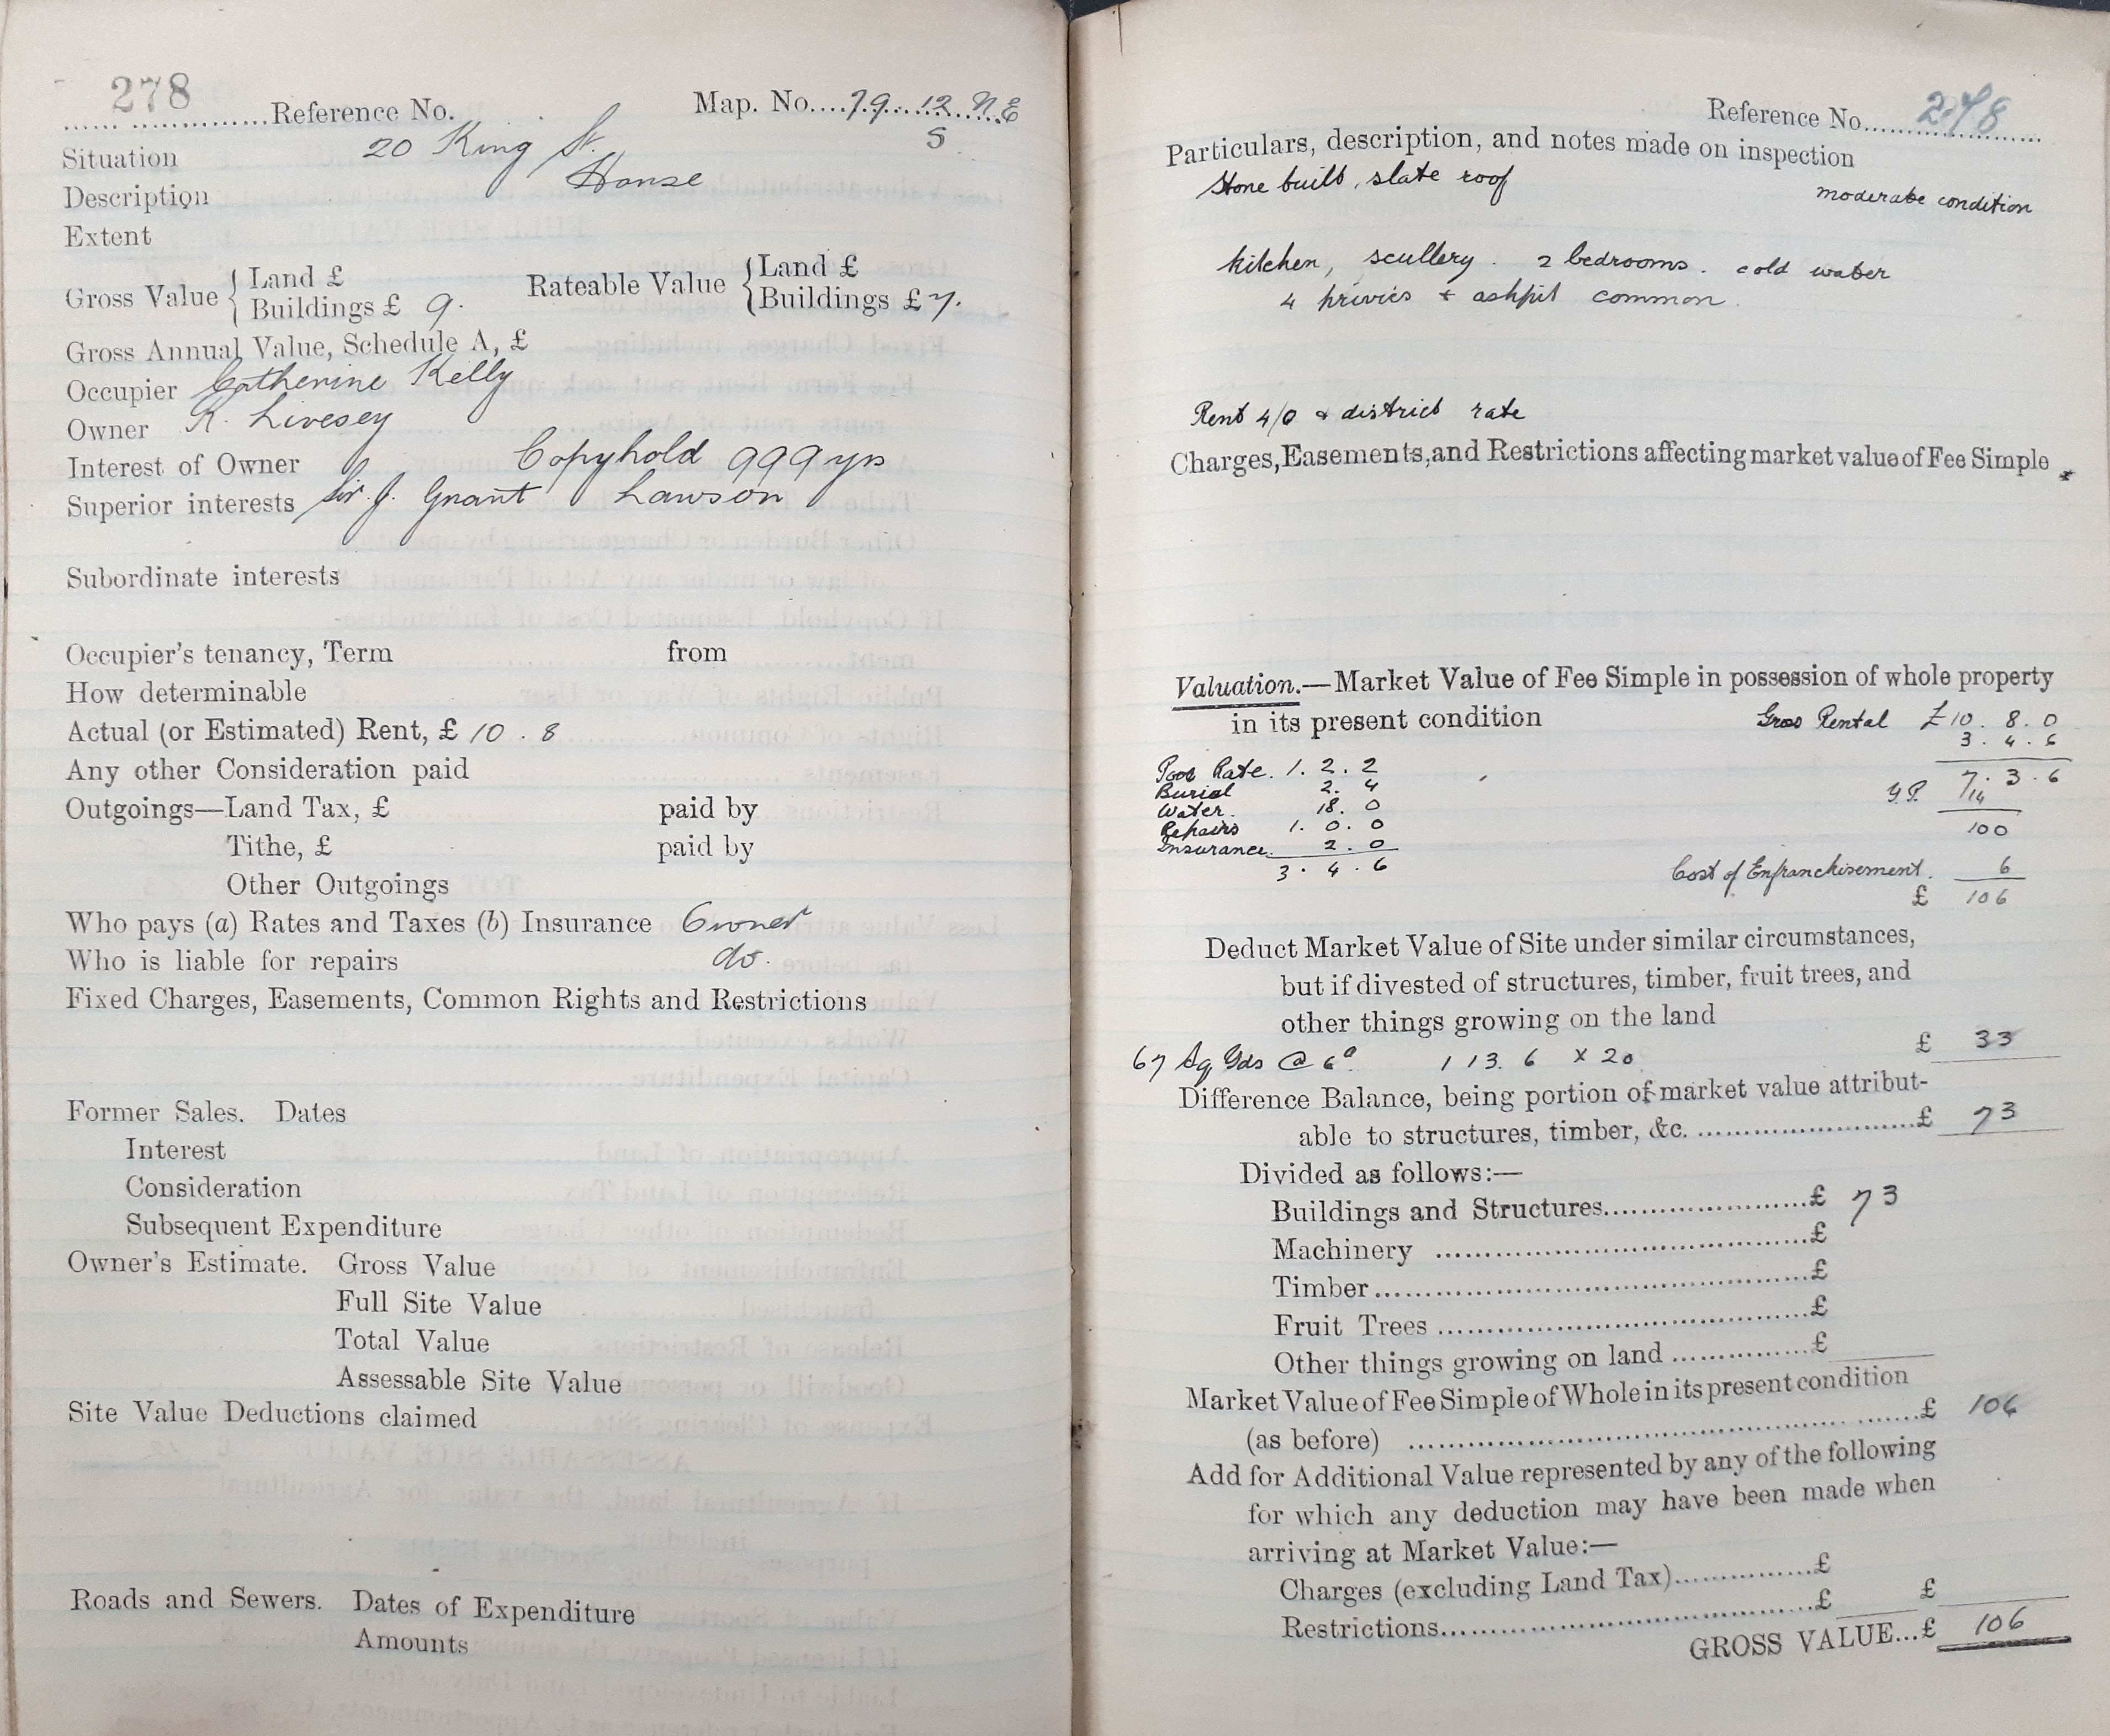 278
...... ..............Reference No.
Map. No....79...12.N.E
S
Situation 20 King St.
Description House
Extent
Gross Value { Land £
Buildings £ 9.
Rateable Value { Land £
Buildings £ 7.
Gross Annual Value, Schedule A, £
Occupier Catherine Kelly
Owner R. Livesey
Interest of Owner Copyhold 999 yrs
Superior interests Sir J. Grant Lawson
Subordinate interests
Occupier's tenancy, Term from
How determinable
Actual (or Estimated) Rent, £ 10 . 8
Any other Consideration paid
Outgoings—Land Tax, £ paid by
Tithe, £ paid by
Other Outgoings
Who pays (a) Rates and Taxes (b) Insurance Owner
Who is liable for repairs do.
Fixed Charges, Easements, Common Rights and Restrictions
Former Sales. Dates
Interest
Consideration
Subsequent Expenditure
Owner's Estimate. Gross Value
Full Site Value
Total Value
Assessable Site Value
Site Value Deductions claimed
Roads and Sewers. Dates of Expenditure
Amounts
Reference No. 278
Particulars, description, and notes made on inspection
Stone built, slate roof
moderate condition
kitchen, scullery. 2 bedrooms. cold water
4 privies + ashpit common.
Rent 4/0 + district rate
Charges, Easements, and Restrictions affecting market value of Fee Simple
Valuation.—Market Value of Fee Simple in possession of whole property
in its present condition
Gross Rental £10. 8. 0
3. 4. 6
7. 3. 6
Y.P. 14
100
Poor Rate. 1. 2. 2
Burial 2. 4
Water. 18. 0
Repairs 1. 0. 0
Insurance. 2. 0
3. 4. 6
Cost of Enfranchisement. 6
£ 106
Deduct Market Value of Site under similar circumstances,
but if divested of structures, timber, fruit trees, and
other things growing on the land
£ 33
67 Sq Yds @ 6d 1 13. 6 x 20
Difference Balance, being portion of market value attribut-
able to structures, timber, &c. ........................£ 73
Divided as follows:—
Buildings and Structures.......................£ 73
Machinery .........................................£
Timber................................................£
Fruit Trees .........................................£
Other things growing on land ...............£
Market Value of Fee Simple of Whole in its present condition
(as before) ................................................£ 106
Add for Additional Value represented by any of the following
for which any deduction may have been made when
arriving at Market Value:—
Charges (excluding Land Tax)...............£
Restrictions..........................................£ £
GROSS VALUE...£ 106